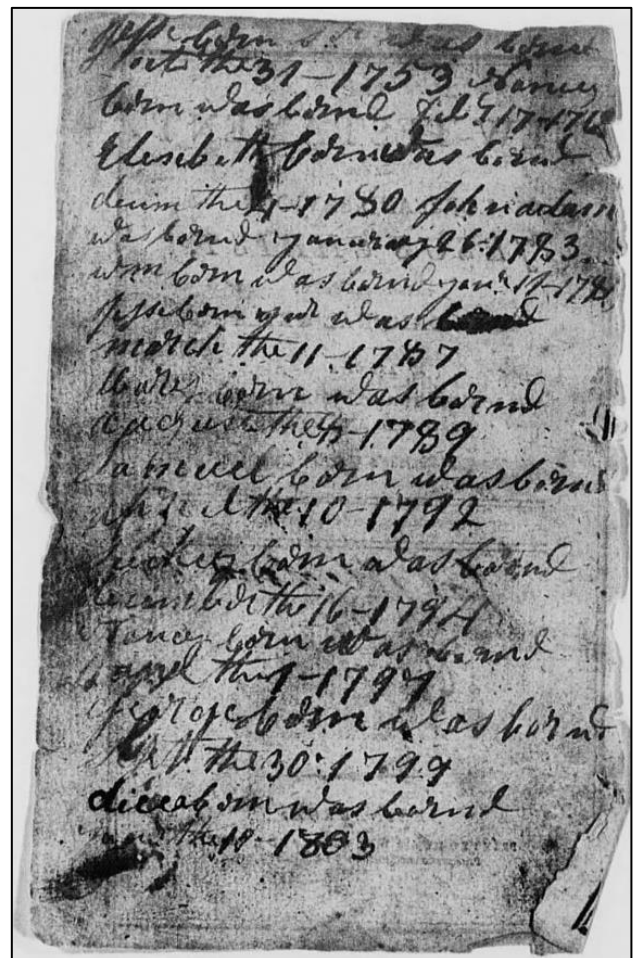 Jesse born Sr was born
octo the 31 - 1753 Nancy
born was bornd Feb 17-176
Elesibeth born was bornd
decem the 4 - 1780 John adam
was bornd january 26 - 1783
wm born was bornd janr 1785
Jesse born jur was bornd
march the 11 - 1787
born was bornd
august the 1789
Samuel born was bornd
april the 10 - 1792
born was bornd
december the 16 - 1794
Nancy born was bornd
april the 1 - 1797
George born was bornd
Sept. the 30 - 1799
dicea born was bornd
the 18 - 1803